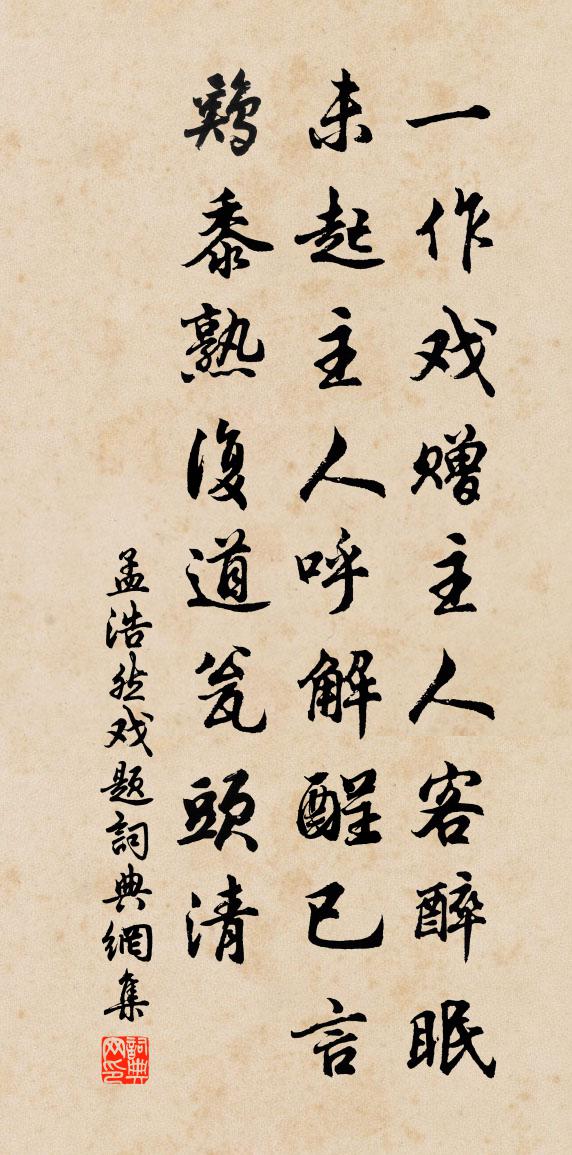 一作戏赠主人客醉眠
未起主人呼解酲已言
鸡黍熟復道瓮頭清
孟浩然戏题詞典網集
詞典网印